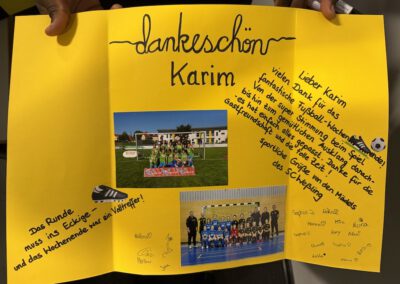 dankeschön
Karim
Lieber Karim
vielen Dank für das
fantastische Fußball-Wochenende!
Von der super Stimmung beim Spiel
bis hin zum gemütlichen Ausklang danach:
es hat einfach alles gepasst. Danke für die
Gastfreundschaft und die tolle Zeit!
sportliche Grüße von den Mädels
des SC
Das Runde
muss ins Eckige -
und das Wochenende war ein Volltreffer!